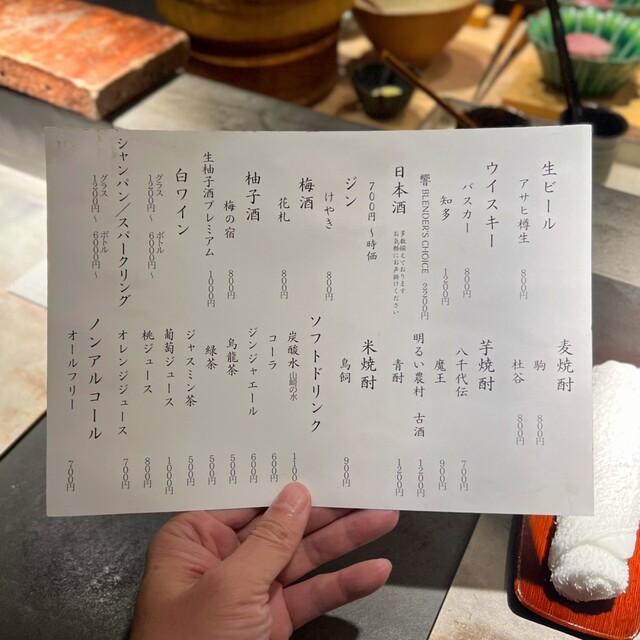 生ビール
アサヒ樽生 800円
ウイスキー
バスカー 800円
知多 1200円
響 BLENDERS CHOICE 2200円
日本酒
多数揃えております
お気軽にお声掛けください
700円〜時価
ジン
けやき 800円
梅酒
花札 800円
柚子酒
梅の宿 800円
生柚子酒プレミアム 1000円
白ワイン
グラス 1200円〜 ボトル 6000円〜
シャンパン/スパークリング
グラス 1200円〜 ボトル 6000円〜
麦焼酎
駒 800円
杜谷 800円
芋焼酎
八千代伝 700円
魔王 900円
明るい農村 古酒 1200円
青酎 1200円
米焼酎
鳥飼 900円
ソフトドリンク
炭酸水 1100
コーラ 600円
ジンジャエール 600円
烏龍茶 500円
緑茶 500円
ジャスミン茶 500円
葡萄ジュース 1000円
桃ジュース 800円
オレンジジュース 700円
ノンアルコール
オールフリー 700円